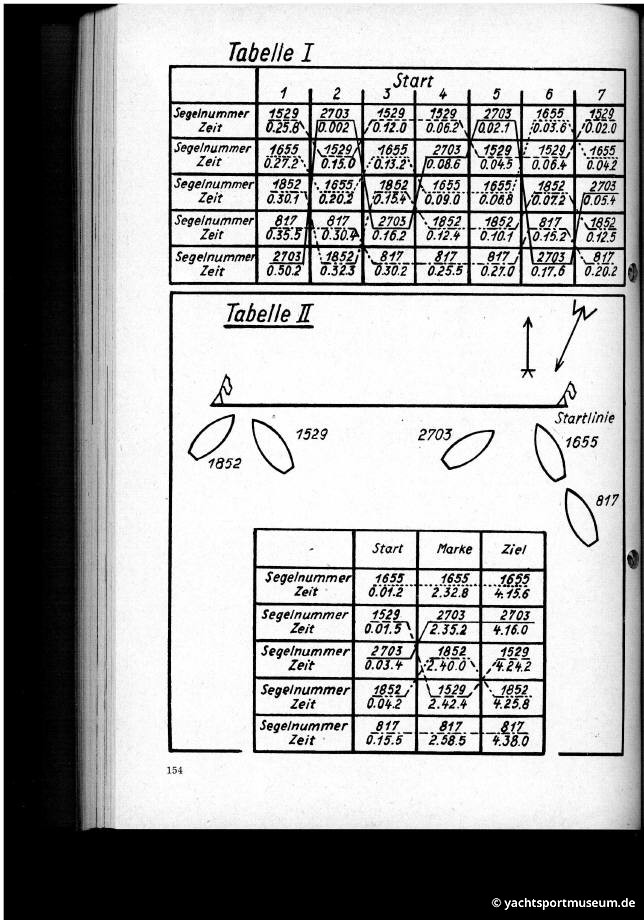 Tabelle I
Start
1 2 3 4 5 6 7
Segelnummer 1529 2703 1529 1529 2703 1655 1529
Zeit 0.25.8 0.00.2 0.12.0 0.06.2 0.02.1 0.03.6 0.02.0
Segelnummer 1655 1529 1655 2703 1529 1529 1655
Zeit 0.27.2 0.15.0 0.13.2 0.08.6 0.04.5 0.06.4 0.04.2
Segelnummer 1852 1655 1852 1655 1655 1852 2703
Zeit 0.30.1 0.20.2 0.15.4 0.09.0 0.06.8 0.07.2 0.05.4
Segelnummer 817 817 2703 1852 1852 817 1852
Zeit 0.35.5 0.30.4 0.16.2 0.12.4 0.10.1 0.15.2 0.12.5
Segelnummer 2703 1852 817 817 817 2703 817
Zeit 0.50.2 0.32.3 0.30.2 0.25.5 0.27.0 0.17.6 0.20.2
Tabelle II
Startlinie
1852 1529 2703 1655
817
Start Marke Ziel
Segelnummer 1655 1655 1655
Zeit 0.01.2 2.32.8 4.15.6
Segelnummer 1529 2703 2703
Zeit 0.01.5 2.35.2 4.16.0
Segelnummer 2703 1852 1529
Zeit 0.03.4 2.40.0 4.24.2
Segelnummer 1852 1529 1852
Zeit 0.04.2 2.42.4 4.25.8
Segelnummer 817 817 817
Zeit 0.15.5 2.58.5 4.38.0
154
© yachtsportmuseum.de